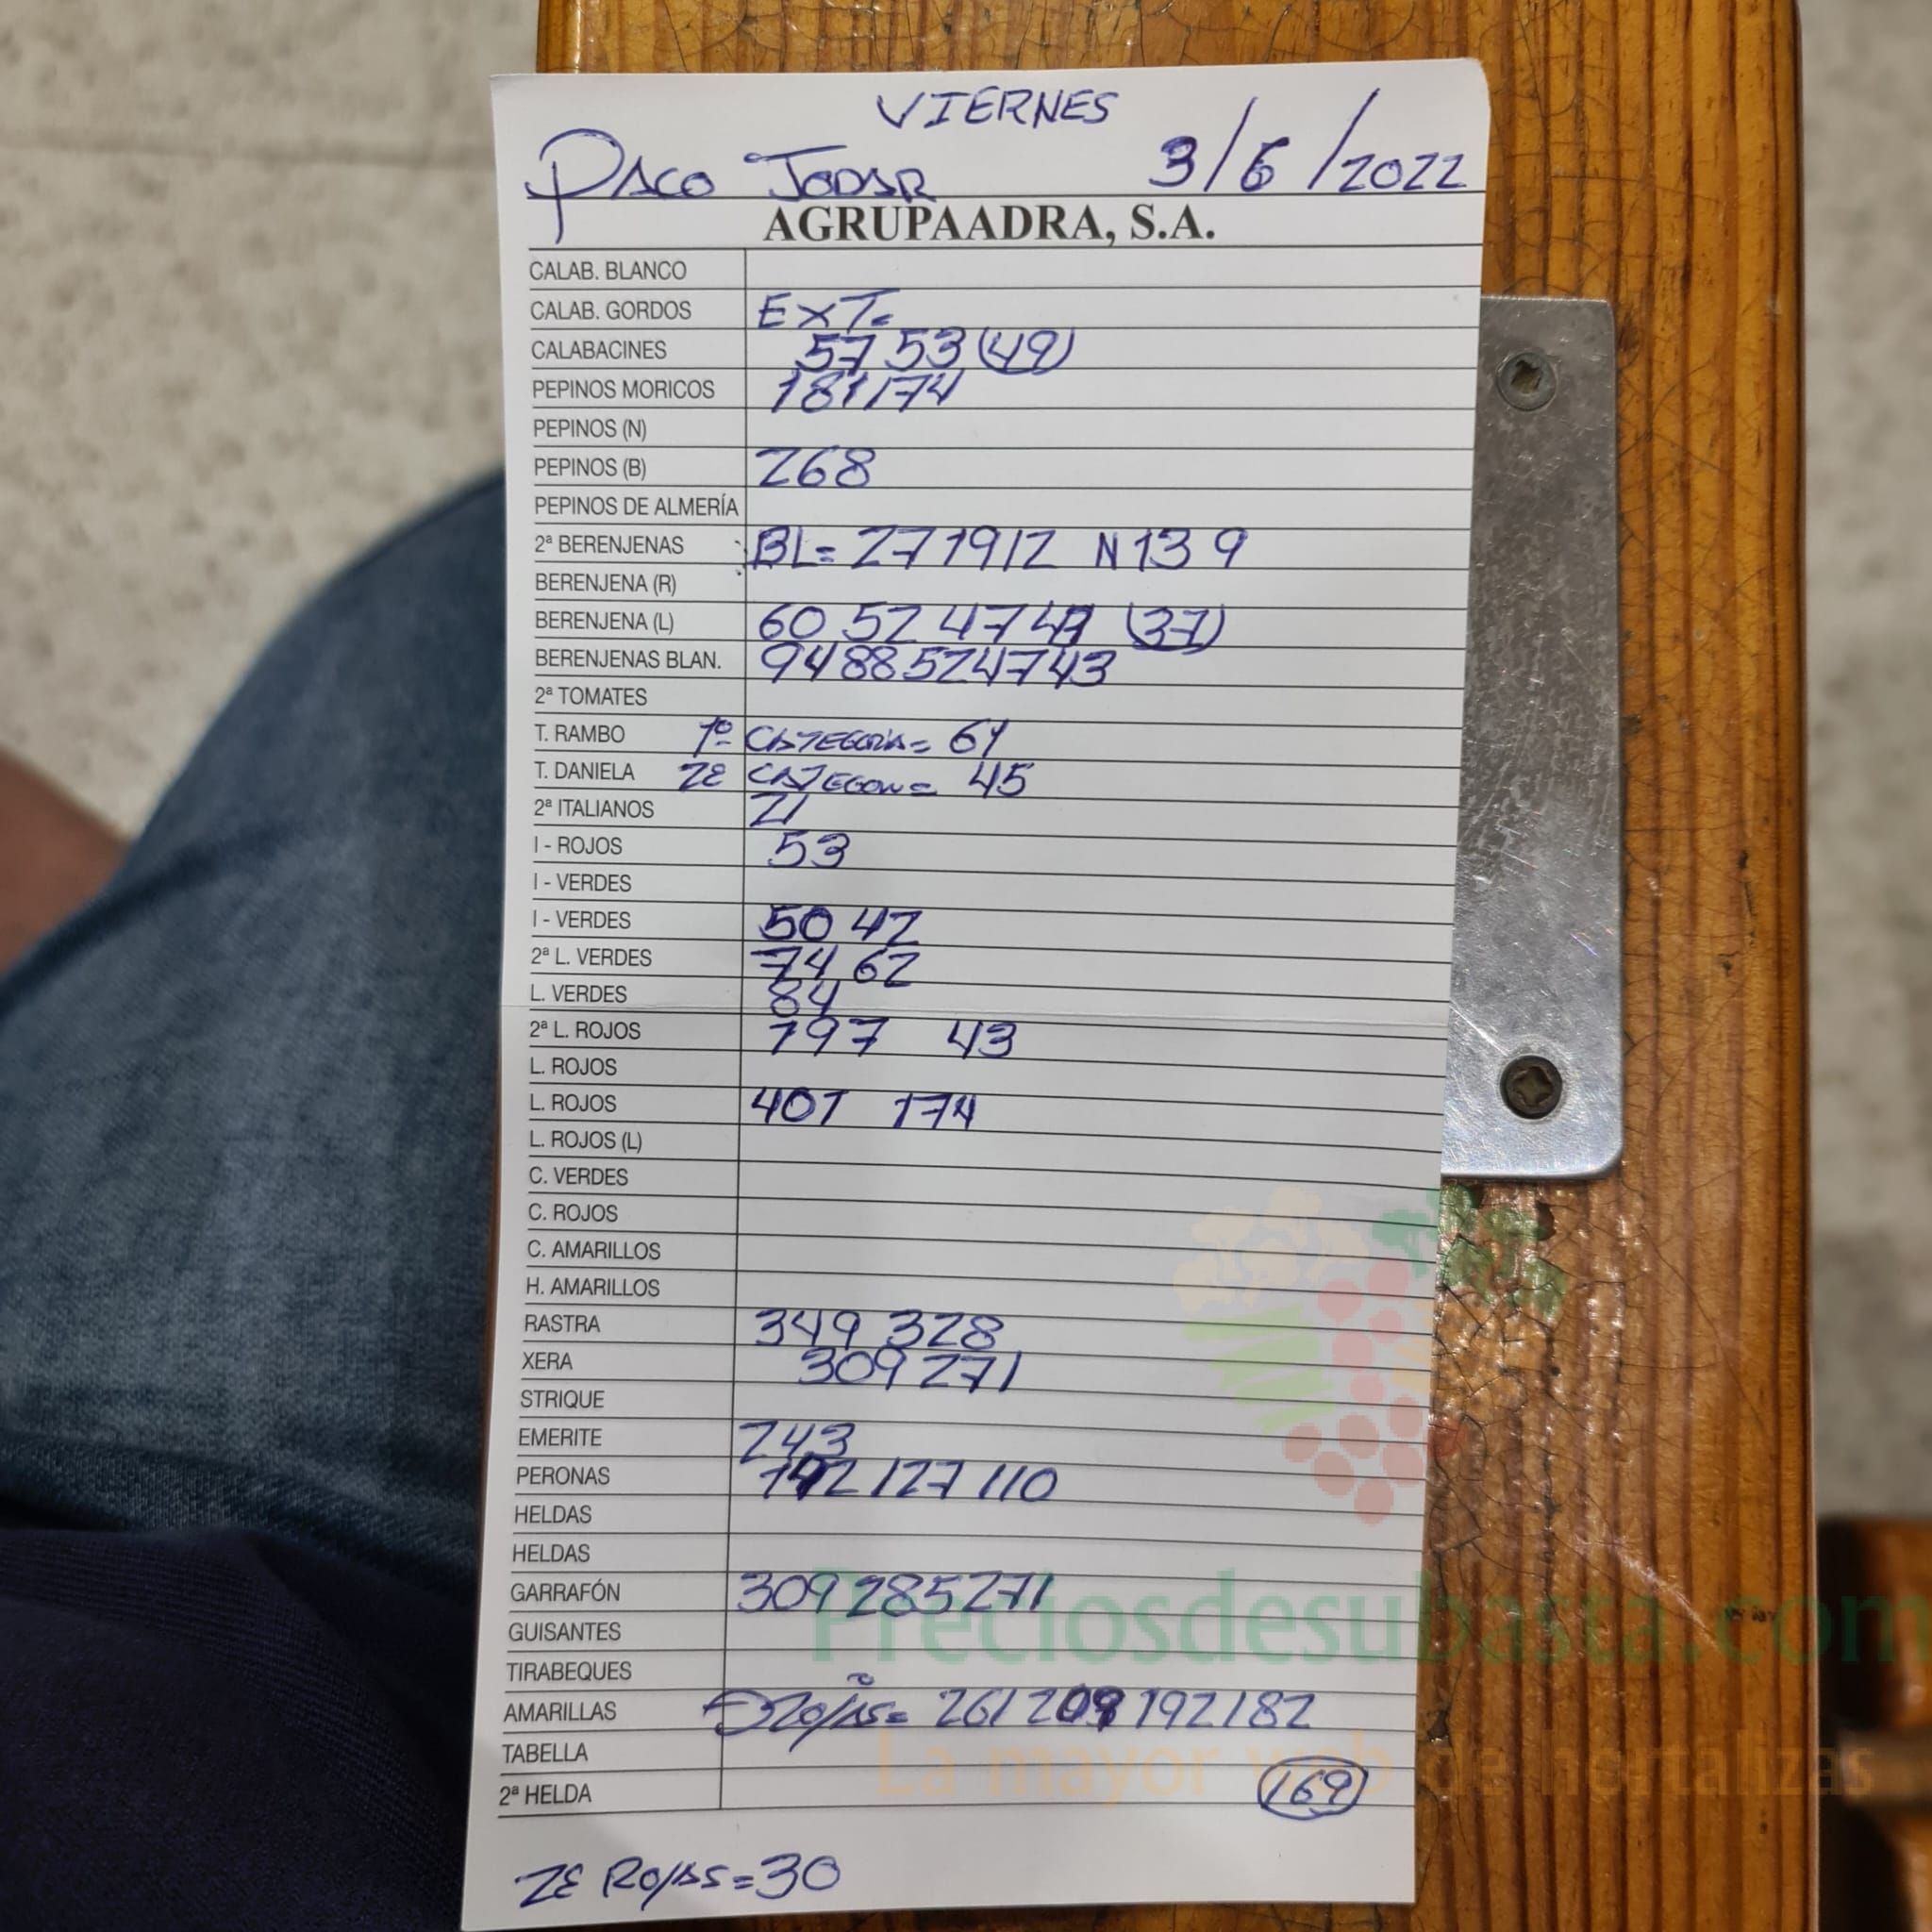 VIERNES
PACO JODAR 3/6/2022
AGRUPAADRA, S.A.
CALAB. BLANCO
CALAB. GORDOS EXT=
CALABACINES 57 53 (49)
PEPINOS MORICOS 181 174
PEPINOS (N)
PEPINOS (B) 268
PEPINOS DE ALMERÍA
2ª BERENJENAS BL= 27 19 12 N 13 9
BERENJENA (R)
BERENJENA (L) 60 52 47 (37)
BERENJENAS BLAN. 94 88 52 47 43
2ª TOMATES
T. RAMBO 1º CATEGORIA= 61
T. DANIELA 2ª = 45
2ª ITALIANOS 21
I - ROJOS 53
I - VERDES
I - VERDES 50 42
2ª L. VERDES 74 62
L. VERDES 84
2ª L. ROJOS 197 43
L. ROJOS
L. ROJOS 401 174
L. ROJOS (L)
C. VERDES
C. ROJOS
C. AMARILLOS
H. AMARILLOS
RASTRA 349 328
XERA 309 271
STRIQUE
EMERITE 243
PERONAS 127 110
HELDAS
HELDAS
GARRAFÓN 309 285 271
GUISANTES
TIRABEQUES
AMARILLAS 261 192 182
TABELLA
2ª HELDA 169
2ª ROJAS=30
Preciosdesubasta.com
La mayor web de hortalizas